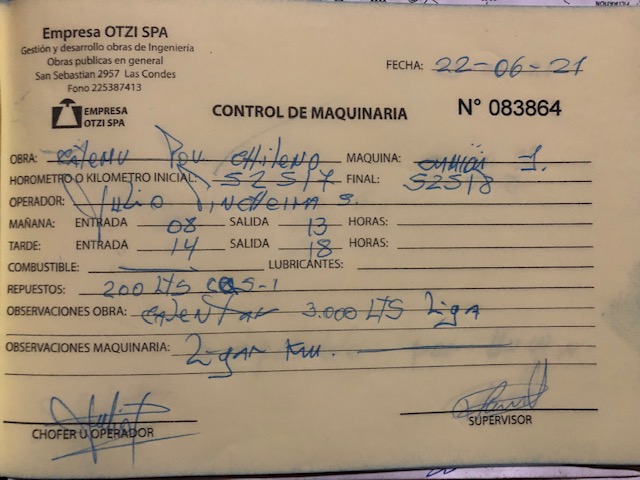 Empresa OTZI SPA
Gestión y desarrollo obras de Ingeniería
Obras públicas en general
San Sebastian 2957 Las Condes
Fono 225387413
FECHA: 22-06-21
EMPRESA
OTZI SPA
CONTROL DE MAQUINARIA N° 083864
OBRA: CHILENA MAQUINA: 1.
HOROMETRO O KILOMETRO INICIAL: FINAL:
OPERADOR: Julio
MAÑANA: ENTRADA 08 SALIDA 13 HORAS:
TARDE: ENTRADA 14 SALIDA 18 HORAS:
COMBUSTIBLE: LUBRICANTES:
REPUESTOS: 200 LTS
OBSERVACIONES OBRA: 3.000 LTS Liga
OBSERVACIONES MAQUINARIA:
CHOFER U OPERADOR
SUPERVISOR